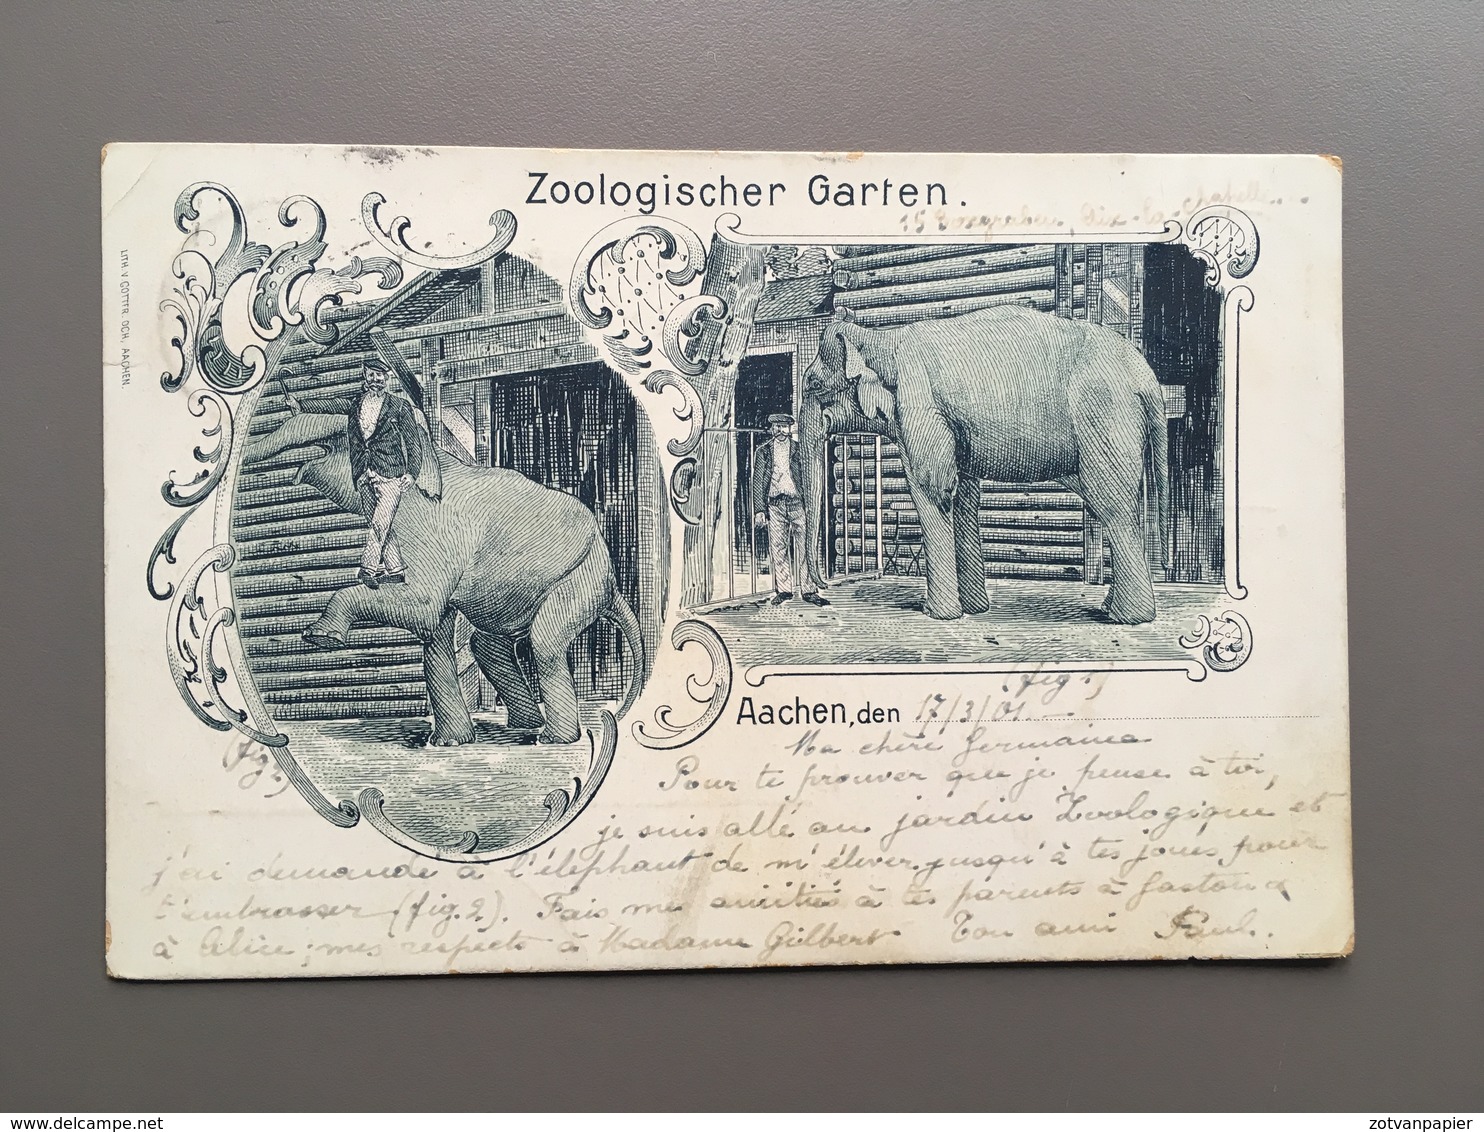 Zoologischer Garten.
15 Aix-la-Chapelle...
LITH. V. GOTTFR. OCH, AACHEN.
(fig. 1)
Aachen, den 17/3/01.
(fig 2)
Ma chère Germaine
Pour te prouver que je pense à toi,
je suis allé au jardin Zoologique et
j'ai demandé à l'éléphant de m'élever jusqu'à tes joues pour
t'embrasser (fig. 2). Fais mes amitiés à tes parents à Gaston &
à Alice; mes respects à Madame Gilbert Ton ami Paul.
delcampe.net
zotvanpapier